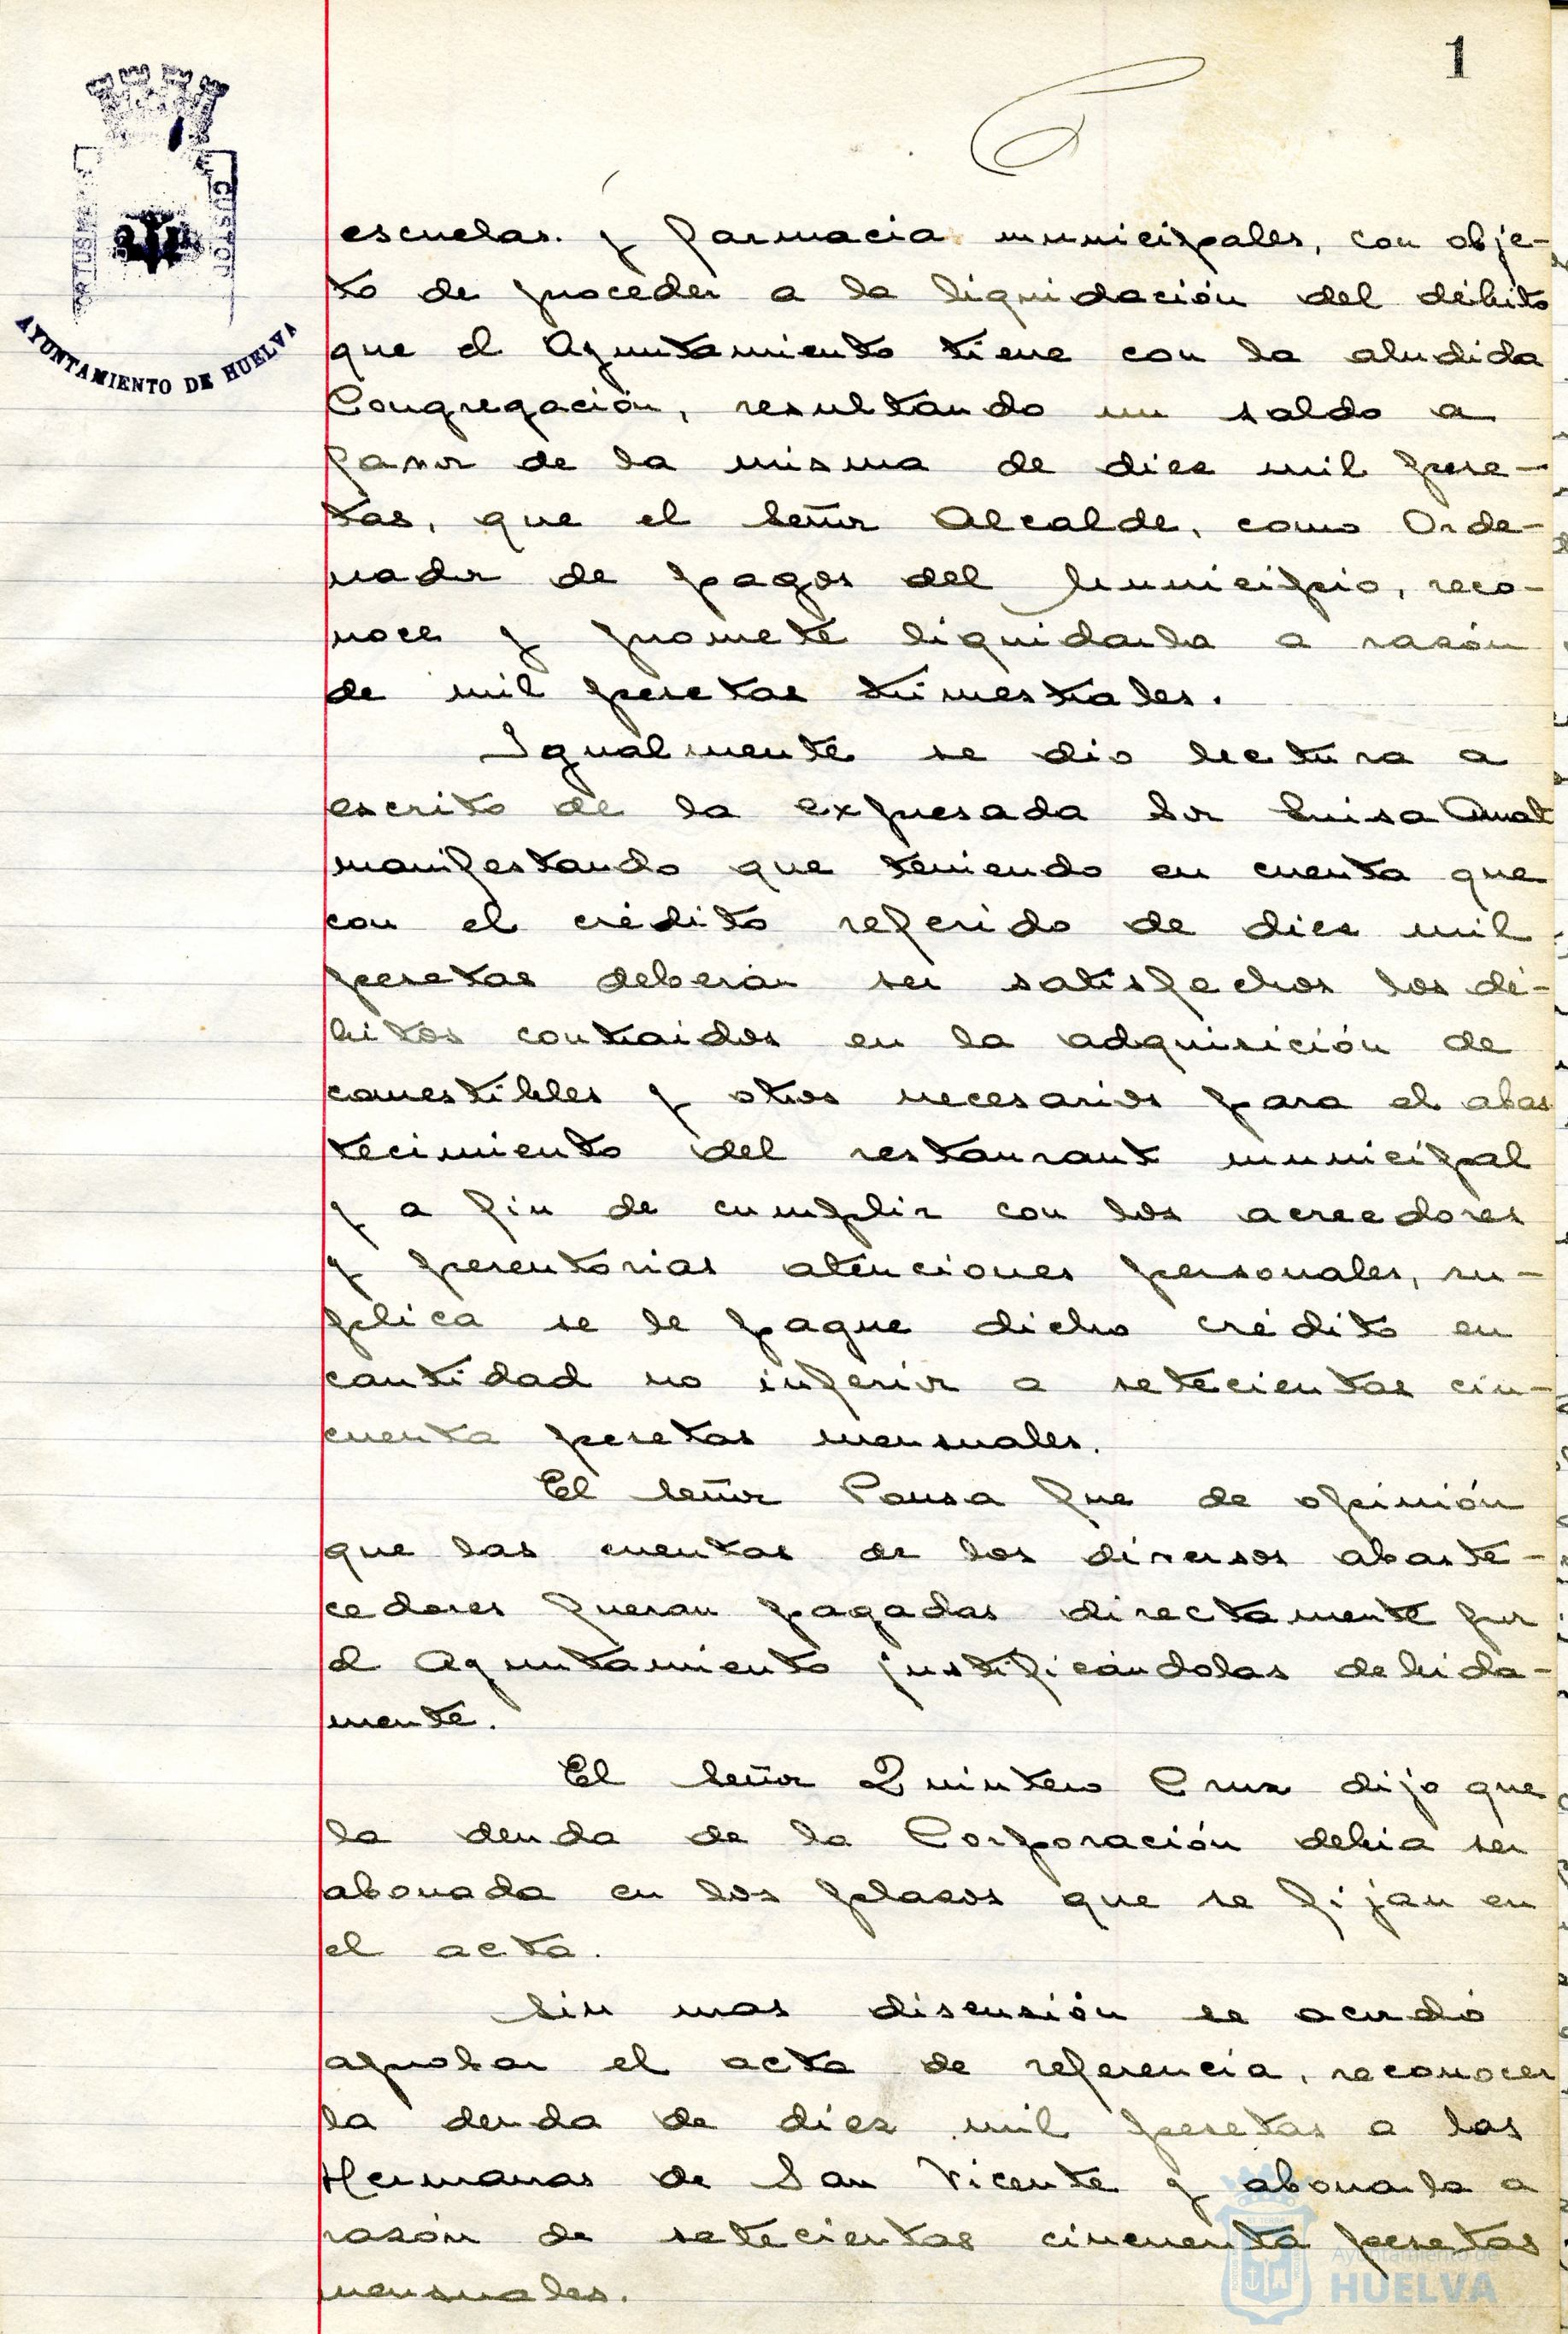 1
AYUNTAMIENTO DE HUELVA
escuelas y farmacia municipales, con obje-
to de proceder a la liquidación del débito
que el Ayuntamiento tiene con la aludida
Congregación, resultando un saldo a
favor de la misma de diez mil pese-
tas, que el Señor Alcalde, como Orde-
nador de pagos del Municipio, reco-
noce y promete liquidarla a razón
de mil pesetas trimestrales.
Igualmente se dio lectura a
escrito de la expresada Sor Luisa Amat
manifestando que teniendo en cuenta que
con el crédito referido de diez mil
pesetas deberán ser satisfechos los dé-
bitos contraidos en la adquisición de
comestibles y otros necesarios para el abas
tecimiento del restaurant municipal
y a fin de cumplir con los acreedores
y perentorias atenciones personales, su-
plica se le pague dicho crédito en
cantidad no inferior a setecientas cin-
cuenta pesetas mensuales.
El Señor Pousa fue de opinión
que las cuentas de los diversos abaste-
cedores fueran pagadas directamente por
el Ayuntamiento justificándolas debida-
mente.
El Señor Quintero Cruz dijo que
la deuda de la Corporación debia ser
abonada en los plazos que se fijan en
el acta.
Sin mas discusión se acordó
aprobar el acta de referencia, reconocer
la deuda de diez mil pesetas a las
Hermanas de San Vicente y abonarla a
razón de setecientas cincuenta pesetas
mensuales.
Ayuntamiento de
HUELVA